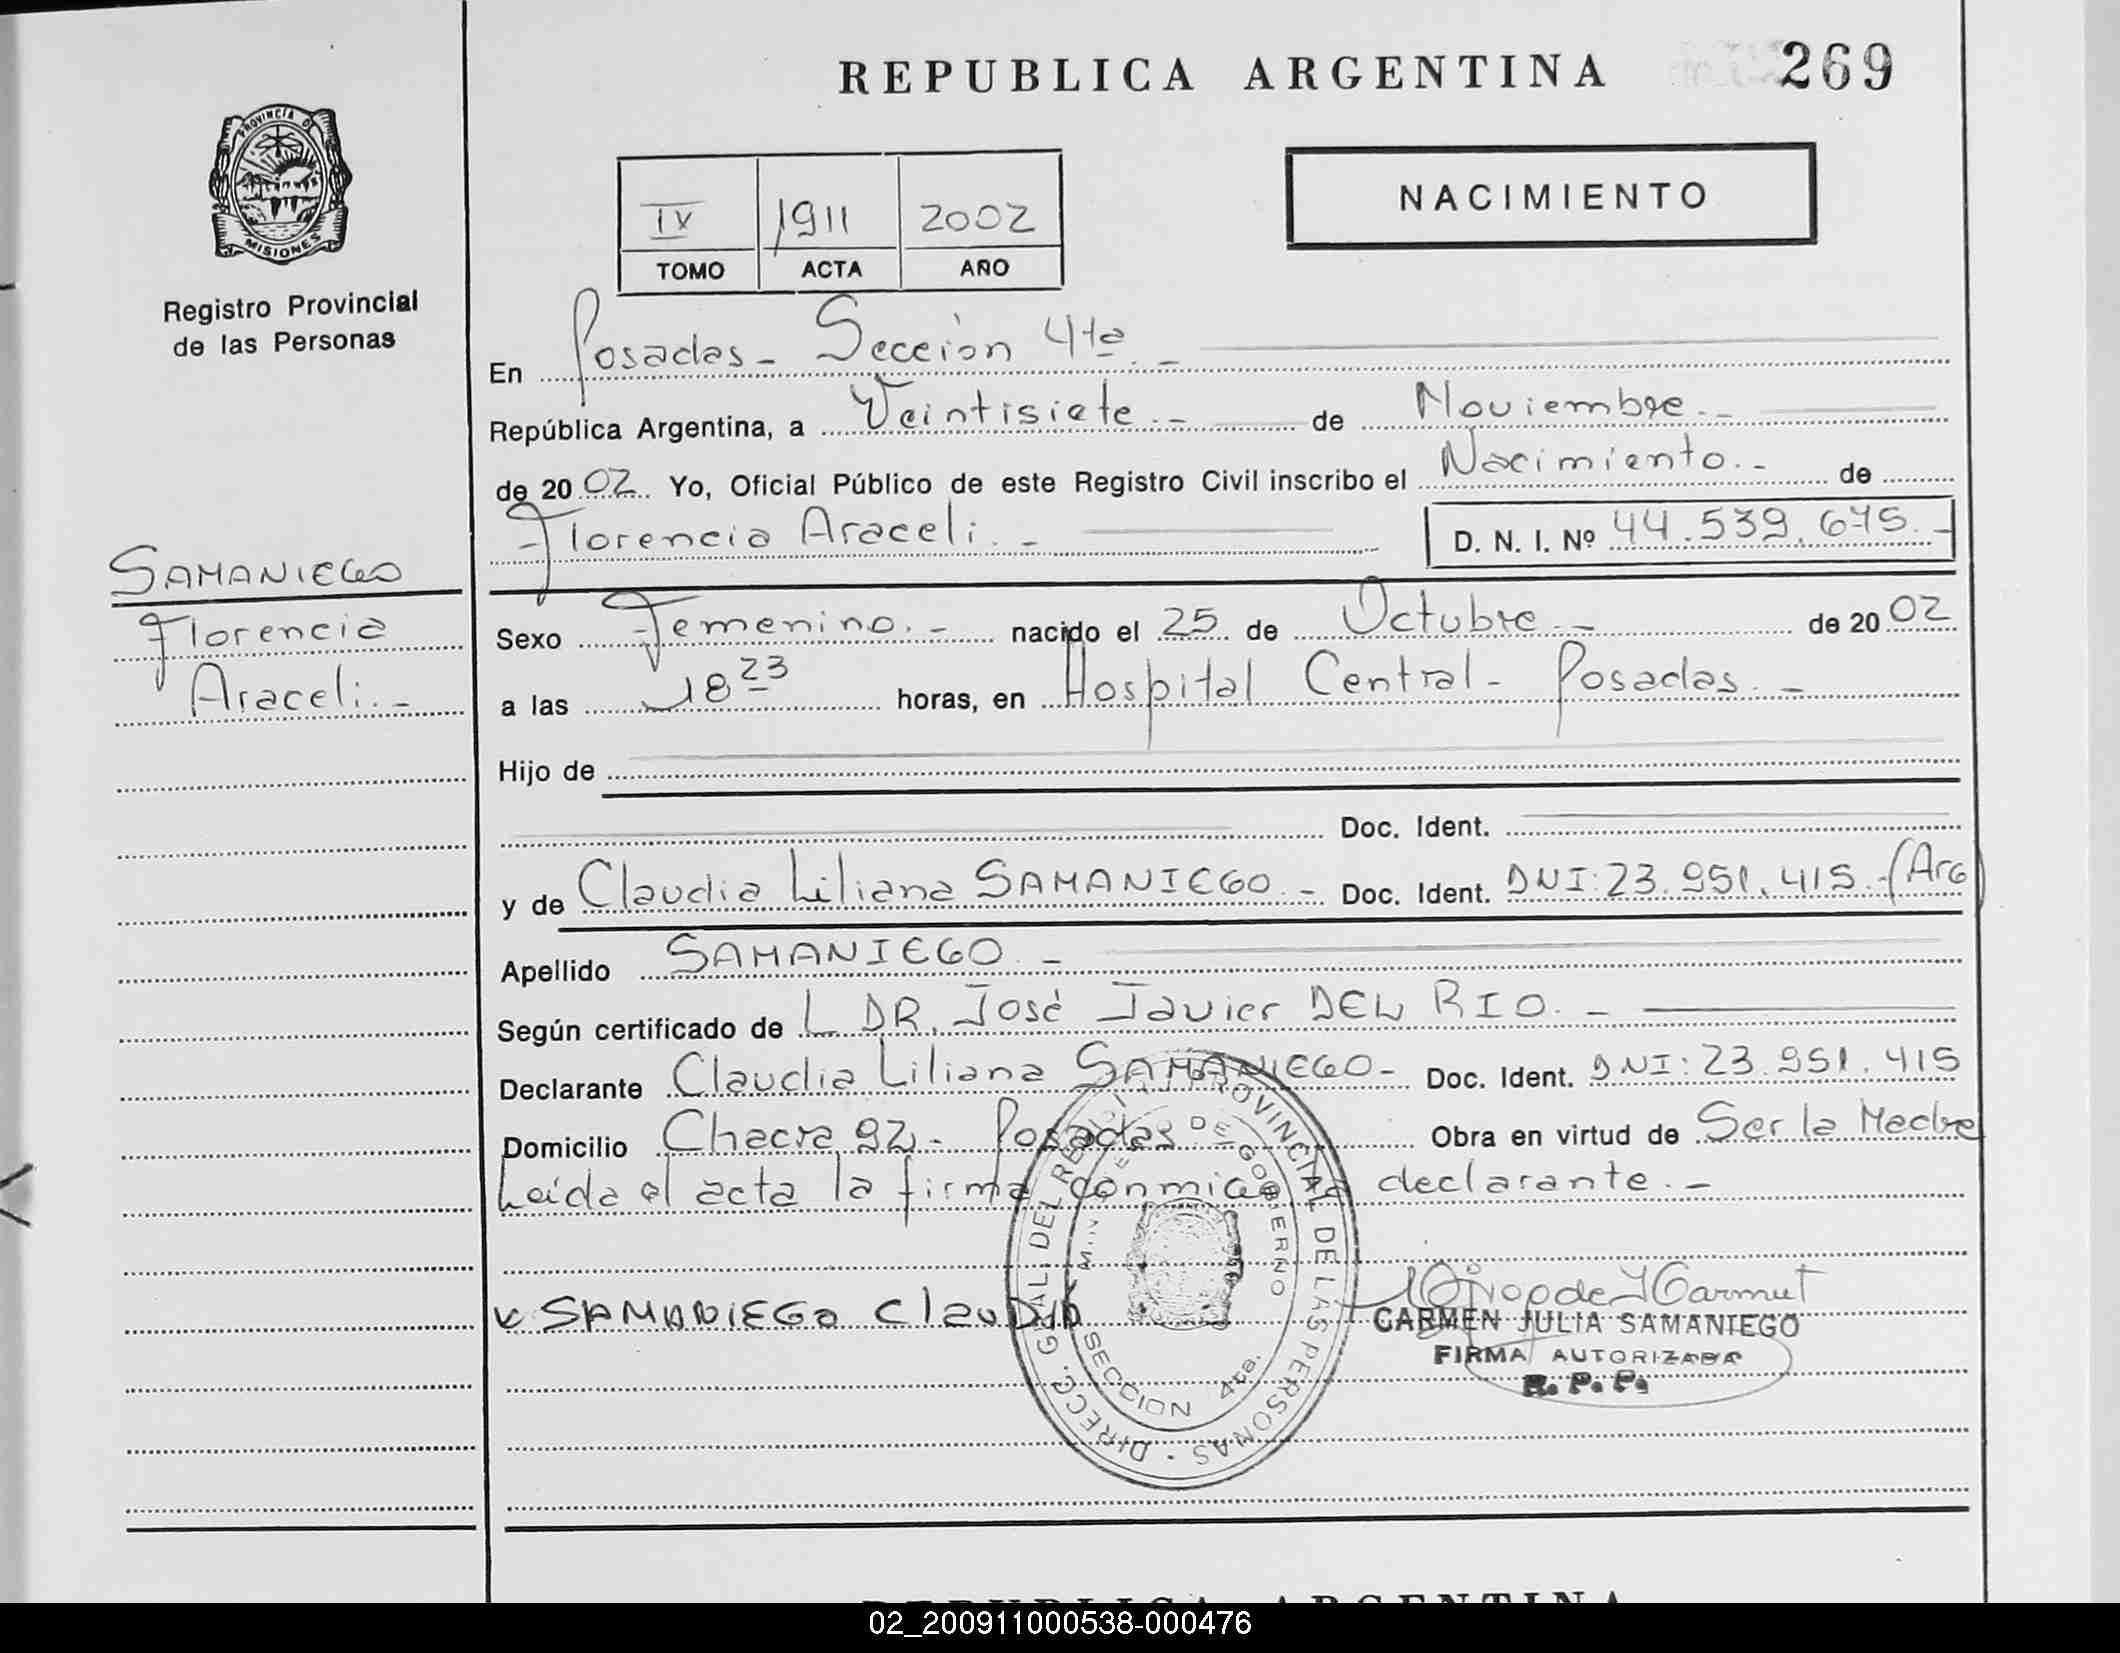 REPUBLICA ARGENTINA
269
PROVINCIA DE
MISIONES
Registro Provincial
de las Personas
IV 1911 2002
TOMO ACTA AÑO
NACIMIENTO
En Posadas - Sección 4ta. -
República Argentina, a Veintisiete. - de Noviembre. -
de 2002. Yo, Oficial Público de este Registro Civil inscribo el Nacimiento. - de
Florencia Araceli. -
D. N. I. Nº 44.539.675. -
SAMANIEGO
Florencia
Araceli. -
Sexo Femenino. - nacido el 25 de Octubre. - de 2002
a las 18 23 horas, en Hospital Central - Posadas. -
Hijo de
Doc. Ident.
y de Claudia Liliana SAMANIEGO. - Doc. Ident. DNI: 23.951.415. - (Arg)
Apellido SAMANIEGO. -
Según certificado de L DR. José Javier DEL RIO. -
Declarante Claudia Liliana SAMANIEGO - Doc. Ident. DNI: 23.951.415
Domicilio Chacra 92 - Posadas Obra en virtud de Ser la Madre
Leída el acta la firma conmigo la declarante. -
SAMANIEGO Claudia
DIRECC. GRAL. DEL REG. PROVINCIAL DE LAS PERSONAS
MINISTERIO DE GOBIERNO
SECCION 4ta.
CARMEN JULIA SAMANIEGO
FIRMA AUTORIZADA
R. P. P.
REPUBLICA ARGENTINA
02_200911000538-000476